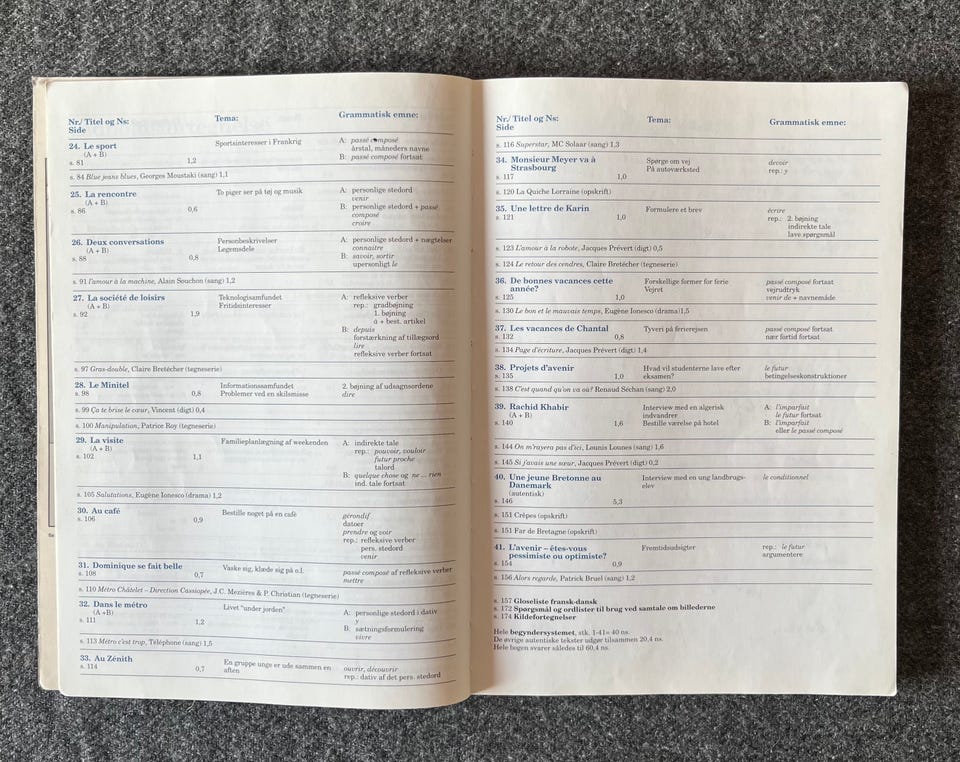 Nr./ Titel og Ns: Tema: Grammatisk emne:
Side
24. Le sport Sportsinteresser i Frankrig A: passé composé
(A + B) årstal, måneders navne
s. 81 1,2 B: passé composé fortsat
s. 84 Blue jeans blues, Georges Moustaki (sang) 1,1
25. La rencontre To piger ser på tøj og musik A: personlige stedord
(A + B) venir
s. 86 0,6 B: personlige stedord + passé
composé
croire
26. Deux conversations Personbeskrivelser A: personlige stedord + nægtelser
(A + B) Legemsdele connaitre
s. 88 0,8 B: savoir, sortir
upersonligt le
s. 91 l'amour à la machine, Alain Souchon (sang) 1,2
27. La société de loisirs Teknologisamfundet A: refleksive verber
(A + B) Fritidsinteresser rep.: gradbøjning
s. 92 1,9 1. bøjning
à + best. artikel
B: depuis
forstærkning af tillægsord
lire
refleksive verber fortsat
s. 97 Gras-double, Claire Bretécher (tegneserie)
28. Le Minitel Informationssamfundet 2. bøjning af udsagnsordene
s. 98 0,8 Problemer ved en skilsmisse dire
s. 99 Ça te brise le cœur, Vincent (digt) 0,4
s. 100 Manipulation, Patrice Roy (tegneserie)
29. La visite Familieplanlægning af weekenden A: indirekte tale
(A + B) rep.: pouvoir, vouloir
s. 102 1,1 futur proche
talord
B: quelque chose og ne ... rien
ind. tale fortsat
s. 105 Salutations, Eugène Ionesco (drama) 1,2
30. Au café Bestille noget på en café gérondif
s. 106 0,9 datoer
prendre og voir
rep.: refleksive verber
pers. stedord
venir
31. Dominique se fait belle Vaske sig, klæde sig på o.l. passé composé af refleksive verber
s. 108 0,7 mettre
s. 110 Métro Châtelet – Direction Cassiopée, J.C. Mezières & P. Christian (tegneserie)
32. Dans le métro Livet "under jorden" A: personlige stedord i dativ
(A +B) y
s. 111 1,2 B: sætningsformulering
vivre
s. 113 Métro c'est trop, Téléphone (sang) 1,5
33. Au Zénith En gruppe unge er ude sammen en ouvrir, découvrir
s. 114 0,7 aften rep.: dativ af det pers. stedord
Nr./ Titel og Ns: Tema: Grammatisk emne:
Side
s. 116 Superstar, MC Solaar (sang) 1,3
34. Monsieur Meyer va à Spørge om vej devoir
Strasbourg På autoværksted rep.: y
s. 117 1,0
s. 120 La Quiche Lorraine (opskrift)
35. Une lettre de Karin Formulere et brev écrire
s. 121 1,0 rep.: 2. bøjning
indirekte tale
lave spørgsmål
s. 123 L'amour à la robote, Jacques Prévert (digt) 0,5
s. 124 Le retour des cendres, Claire Bretécher (tegneserie)
36. De bonnes vacances cette Forskellige former for ferie passé composé fortsat
année? Vejret vejrudtryk
s. 125 1,0 venir de + navnemåde
s. 130 Le bon et le mauvais temps, Eugène Ionesco (drama)1,5
37. Les vacances de Chantal Tyveri på ferierejsen passé composé fortsat
s. 132 0,8 nær fortid fortsat
s. 134 Page d'écriture, Jacques Prévert (digt) 1,4
38. Projets d'avenir Hvad vil studenterne lave efter le futur
s. 135 1,0 eksamen? betingelseskonstruktioner
s. 138 C'est quand qu'on va où? Renaud Séchan (sang) 2,0
39. Rachid Khabir Interview med en algerisk A: l'imparfait
(A + B) indvandrer le futur fortsat
s. 140 1,6 Bestille værelse på hotel B: l'imparfait
eller le passé composé
s. 144 On m'rayera pas d'ici, Lounis Lounes (sang) 1,6
s. 145 Si j'avais une sœur, Jacques Prévert (digt) 0,2
40. Une jeune Bretonne au Interview med en ung landbrugs- le conditionnel
Danemark elev
(autentisk)
s. 146 5,3
s. 151 Crêpes (opskrift)
s. 151 Far de Bretagne (opskrift)
41. L'avenir – êtes-vous Fremtidsudsigter rep.: le futur
pessimiste ou optimiste? argumentere
s. 154 0,9
s. 156 Alors regarde, Patrick Bruel (sang) 1,2
s. 157 Gloseliste fransk-dansk
s. 172 Spørgsmål og ordlister til brug ved samtale om billederne
s. 174 Kildefortegnelser
Hele begyndersystemet, stk. 1-41= 40 ns.
De øvrige autentiske tekster udgør tilsammen 20,4 ns.
Hele bogen svarer således til 60,4 ns.